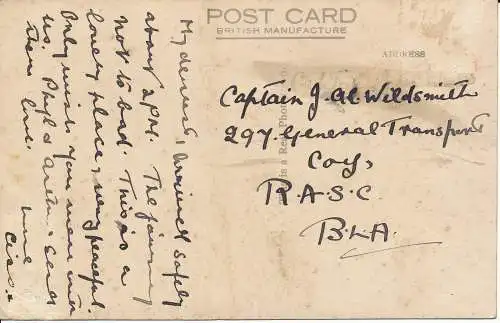 POST CARD
BRITISH MANUFACTURE
ADDRESS
My dearest, Arrived safely
about 2 P.M. The journey
not to bad. This is a
lovely place, very peaceful.
Only wish you were with
us. Phyl & send
love.
is a Real Pho
Captain J. A. Wildsmith
297. General Transport
Coy,
R.A.S.C.
B.L.A.